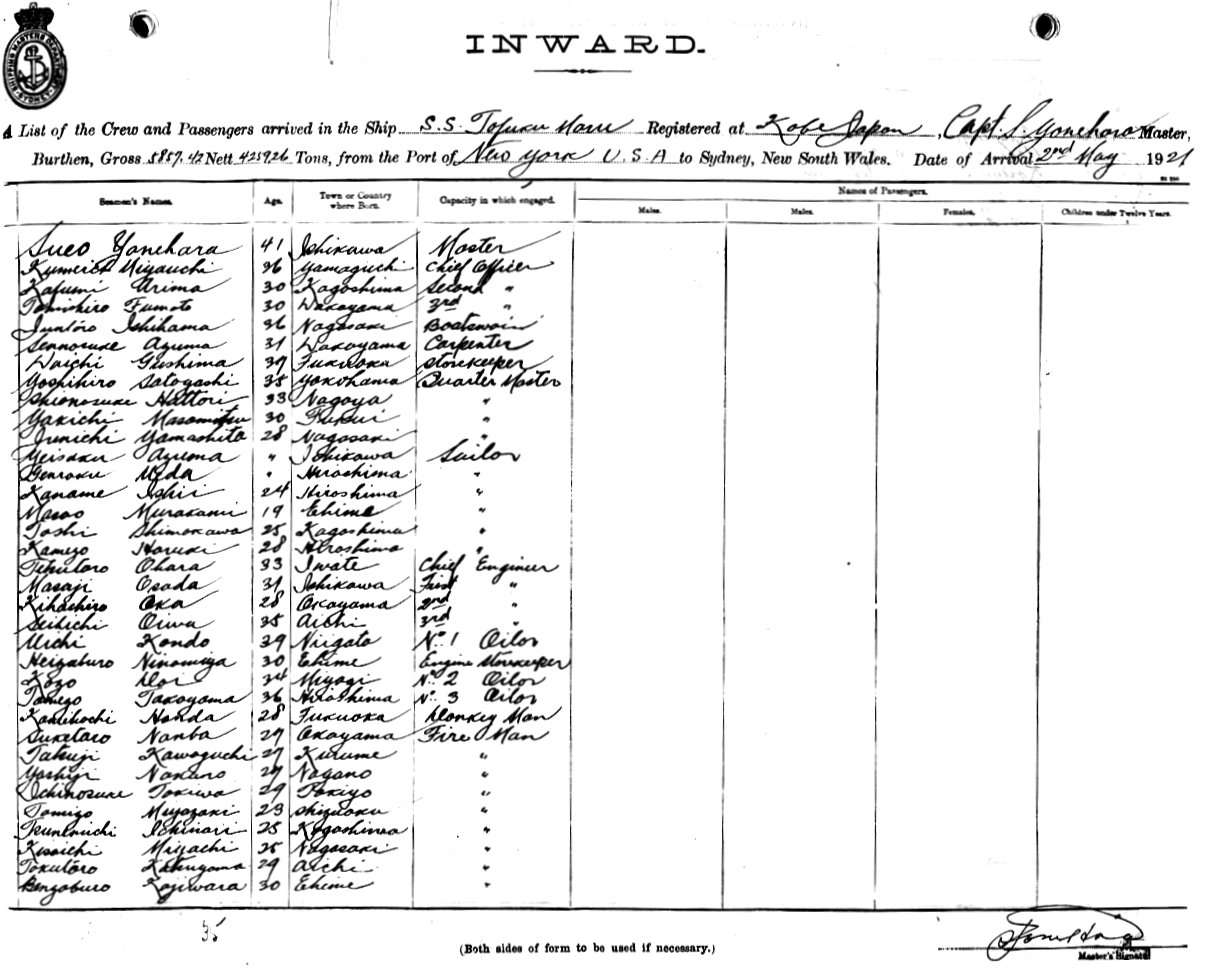 SHIPPING MASTERS DEPARTMENT SYDNEY
INWARD.
A List of the Crew and Passengers arrived in the Ship S.S. Tofuku Maru Registered at Kobe Japan, Capt. S. Yonehara Master,
Burthen, Gross 5857.42 Nett 4259.26 Tons, from the Port of New York U.S.A to Sydney, New South Wales. Date of Arrival 2nd May 1921
Seamen's Names. Age. Town or Country where Born. Capacity in which engaged. Names of Passengers.
Males. Males. Females. Children under Twelve Years.
Sueo Yonehara 41 Ishikawa Master
Miyauchi 36 Yamaguchi Chief Officer
Kafumi Arima 30 Kagoshima Second "
Fumoto 30 Wakayama 3rd "
Juntoro Ishihama 36 Nagasaki Boatswain
Sennosuke Azuma 31 Wakayama Carpenter
Waichi Gushima 39 Fukuoka Storekeeper
Yoshihiro Satogashi 35 Yokohama Quarter Master
Shionosuke Hattori 33 Nagoya "
Yakichi Masamitsu 30 Fukui "
Junichi Yamashita 28 Nagasaki "
Yeisaku Azuma " Ishikawa Sailor
Genroku Ueda " Hiroshima "
Kaname Ishii 24 Hiroshima "
Masao Murakami 19 Ehime "
Toshi Shimokawa 25 Kagoshima "
Kamezo Horuki 28 Hiroshima "
Tokutaro Ohara 33 Iwate Chief Engineer
Masaji Osada 31 Ishikawa First "
Kihachiro Oka 28 Okayama 2nd "
Seikichi Oiwa 35 Aichi 3rd "
Uichi Kondo 39 Niigata No. 1 Oilor
Heizaburo Ninomiya 30 Ehime Engine Storekeeper
Kozo Doi 34 Miyagi No. 2 Oilor
Tamezo Takayama 36 Hiroshima No. 3 Oilor
Kamehachi Honda 28 Fukuoka Donkey Man
Suketaro Nanba 29 Okayama Fire Man
Tatsuji Kawaguchi 27 Kurume "
Yoshiji Nakano 29 Nagano "
Ichinosuke Tokiwa 29 Tokiyo "
Tomizo Miyazaki 23 Shizuoka "
Tsunekichi Ichinari 25 Kagoshima "
Kisaichi Miyachi 25 Nagasaki "
Tokutoro Katsuyama 29 Aichi "
Bengaburo Kajiwara 30 Ehime "
35
(Both sides of form to be used if necessary.)
Master's Signature